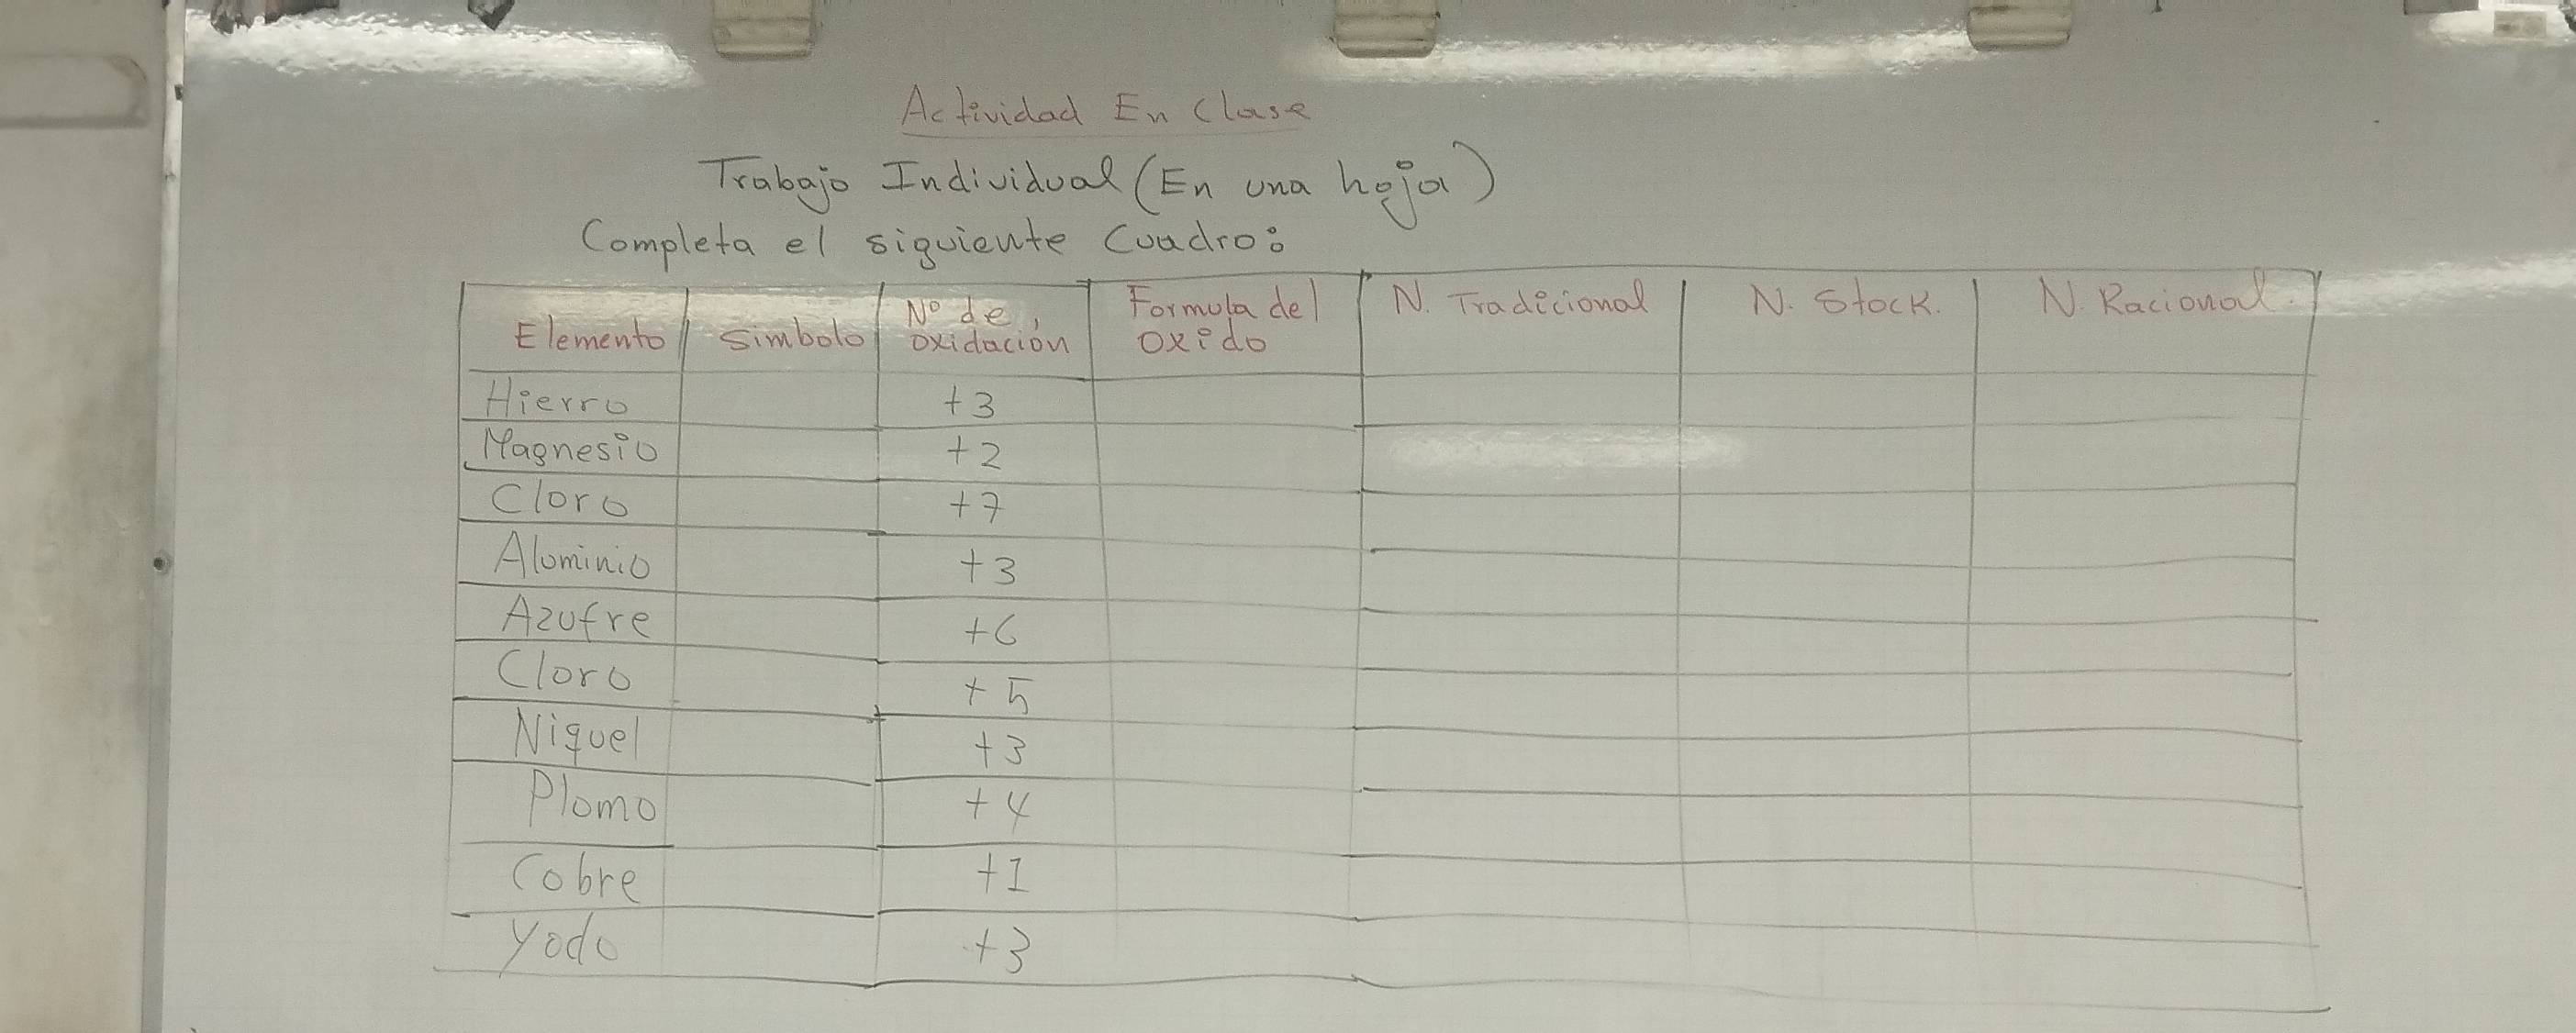 Actividad En Clase
Trabajo Individual (En una hoja)
Completa el siguiente Cuadro:
Elemento Simbolo Nº de oxidación Formula del Oxido N. Tradicional N. Stock. N. Racional.
Hierro +3
Magnesio +2
Cloro +7
Aluminio +3
Azufre +6
Cloro +5
Niquel +3
Plomo +4
Cobre +1
Yodo +3